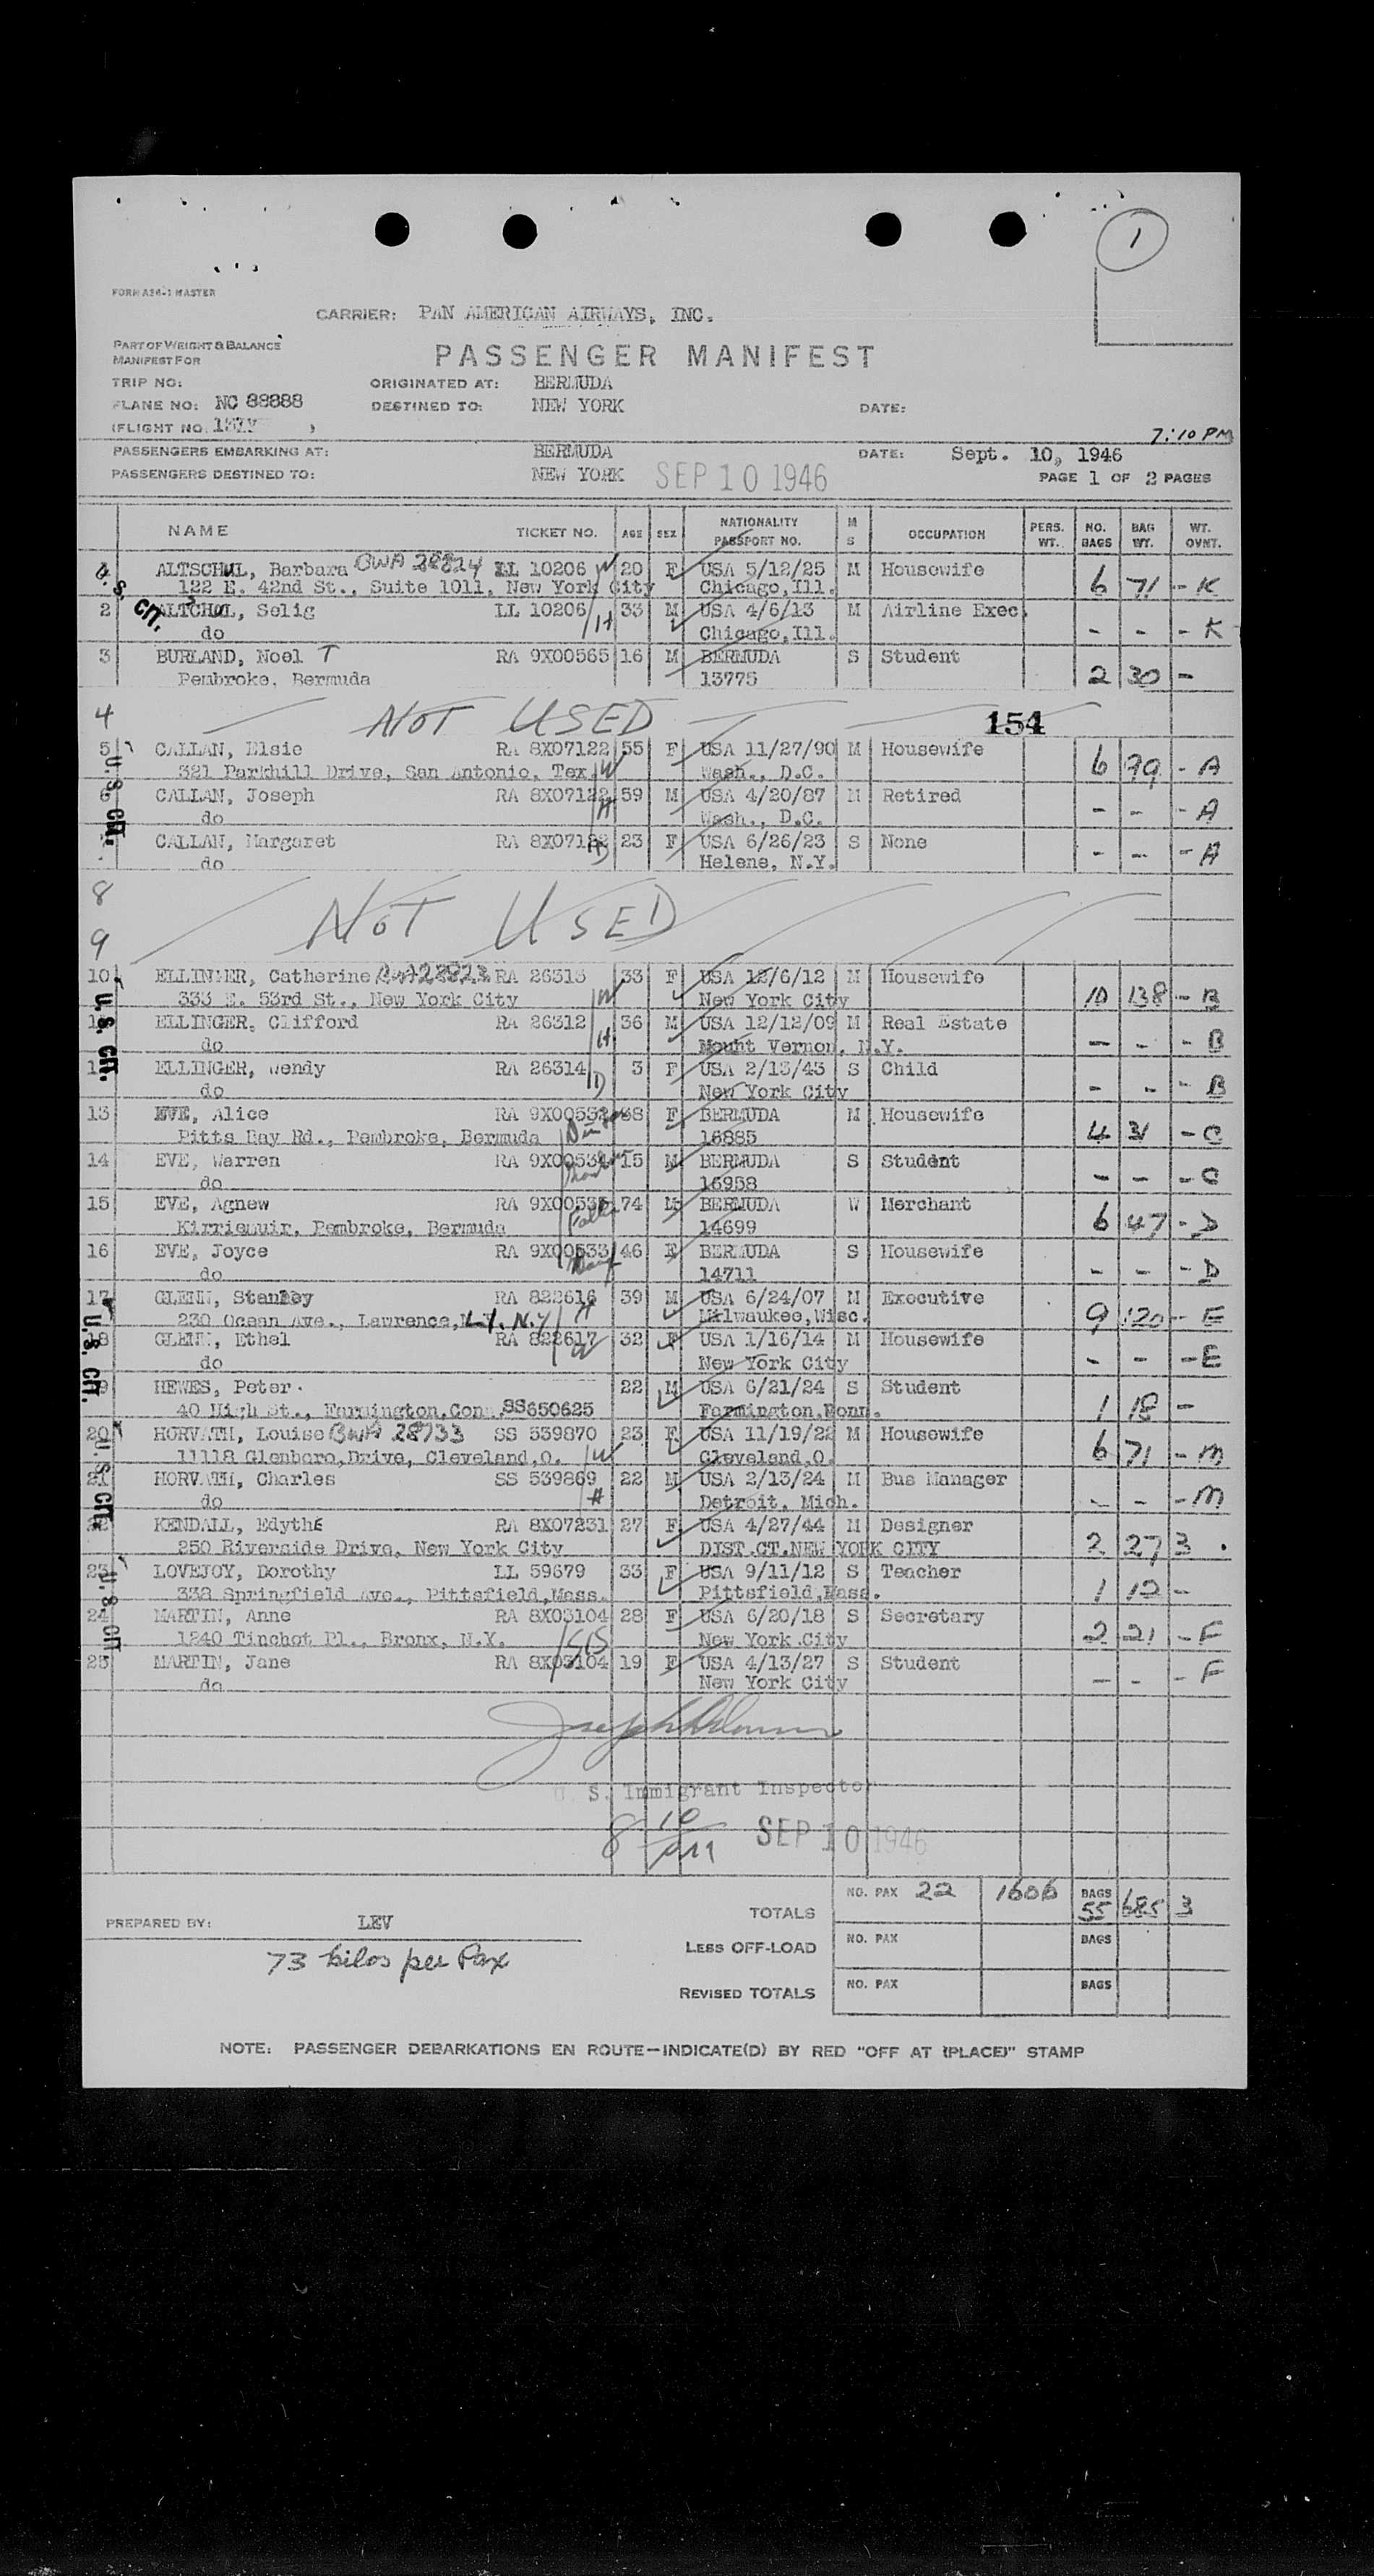 1
FORM A34-1 MASTER
CARRIER: PAN AMERICAN AIRWAYS, INC.
PART OF WEIGHT & BALANCE
MANIFEST FOR
PASSENGER MANIFEST
TRIP NO: ORIGINATED AT: BERMUDA
PLANE NO: NC 88888 DESTINED TO: NEW YORK DATE:
(FLIGHT NO. )
7:10 PM
PASSENGERS EMBARKING AT: BERMUDA DATE: Sept. 10, 1946
PASSENGERS DESTINED TO: NEW YORK SEP 10 1946 PAGE 1 OF 2 PAGES
NAME TICKET NO. AGE SEX NATIONALITY PASSPORT NO. M S OCCUPATION PERS. WT. NO. BAGS BAG WT. WT. OVNT.
U. S. CIT.
1 ALTSCHUL, Barbara BWA 28824 LL 10206 W 20 F USA 5/12/25 M Housewife
122 E. 42nd St., Suite 1011, New York City Chicago,Ill. 6 71 - K
2 ALTCHUL, Selig LL 10206 H 33 M USA 4/6/13 M Airline Exec.
do Chicago,Ill. - - - K
3 BURLAND, Noel T RA 9X00565 16 M BERMUDA S Student
Pembroke, Bermuda 13775 2 30 -
4 NOT USED 154
U. S. CIT.
5 CALLAN, Elsie RA 8X07122 55 F USA 11/27/90 M Housewife
321 Parkhill Drive, San Antonio, Tex. W Wash., D.C. 6 79 - A
6 CALLAN, Joseph RA 8X07122 59 M USA 4/20/87 M Retired
do H Wash., D.C. - - - A
CALLAN, Margaret RA 8X07122 23 F USA 6/26/23 S None
do D Helene, N.Y. - - - A
8
NOT USED
9
U. S. CIT.
10 ELLINGER, Catherine BWA28823 RA 26313 33 F USA 12/6/12 M Housewife
333 E. 53rd St., New York City W New York City 10 138 - B
11 ELLINGER, Clifford RA 26312 36 M USA 12/12/09 M Real Estate
do H Mount Vernon, N.Y. - - - B
12 ELLINGER, Wendy RA 26314 3 F USA 2/13/43 S Child
do D New York City - - - B
13 EVE, Alice RA 9X00532 38 F BERMUDA M Housewife
Pitts Bay Rd., Pembroke, Bermuda 16885 4 31 - C
14 EVE, Warren RA 9X00534 15 M BERMUDA S Student
do 16958 - - - C
15 EVE, Agnew RA 9X00535 74 M BERMUDA W Merchant
Kirriemuir, Pembroke, Bermuda 14699 6 47 - D
16 EVE, Joyce RA 9X00533 46 F BERMUDA S Housewife
do 14711 - - - D
U. S. CIT.
17 GLENN, Stanley RA 822616 39 M USA 6/24/07 M Executive
230 Ocean Ave., Lawrence, L.I. N.Y. H Milwaukee,Wisc. 9 120 - E
18 GLENN, Ethel RA 822617 32 F USA 1/16/14 M Housewife
do W New York City - - - E
19 HEWES, Peter 22 M USA 6/21/24 S Student
40 High St., Farmington,Conn. SS650625 Farmington,Conn. 1 18 -
U. S. CIT.
20 HORVATH, Louise BWA 28733 SS 539870 23 F USA 11/19/22 M Housewife
11118 Glenboro,Drive, Cleveland,O. W Cleveland,O. 6 71 - M
21 HORVATH, Charles SS 539869 22 M USA 2/13/24 M Bus Manager
do H Detroit, Mich. - - - M
22 KENDALL, Edythe RA 8X07231 27 F USA 4/27/44 M Designer
250 Riverside Drive, New York City DIST.CT.NEW YORK CITY 2 27 3
U. S. CIT
23 LOVEJOY, Dorothy LL 59679 33 F USA 9/11/12 S Teacher
338 Springfield Ave., Pittsfield,Mass. Pittsfield,Mass. 1 12 -
24 MARTIN, Anne RA 8X03104 28 F USA 6/20/18 S Secretary
1240 Tinchot Pl., Bronx, N.Y. SIS New York City 2 21 - F
25 MARTIN, Jane RA 8X03104 19 F USA 4/13/27 S Student
do New York City - - - F
U. S. Immigrant Inspector
8 10 SEP 10 1946
TOTALS NO. PAX 22 1606 BAGS 55 685 3
PREPARED BY: LEV
LESS OFF-LOAD NO. PAX BAGS
73 kilos per Pax
REVISED TOTALS NO. PAX BAGS
NOTE: PASSENGER DEBARKATIONS EN ROUTE—INDICATE(D) BY RED "OFF AT (PLACE)" STAMP